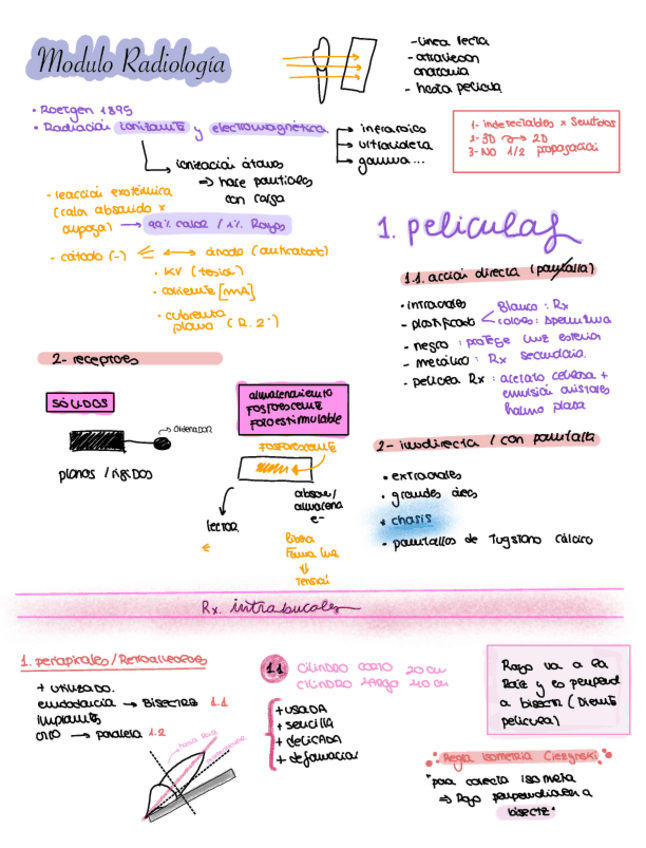 Modulo Radiología
-línea recta
- atraviesan
anatomía
- hasta película
• Roetgen 1895
• Radiación ionizante y electromagnética
infrarojos
ultravioleta
gamma...
ionización átomos
⇒ hace partículas
con carga
1- indetectables x sentidos
2- 3D → 2D
3- NO 1/2 propagación
- reacción exotérmica
(calor absorbido x
ampolla) → 99% calor / 1% Rayos
- cátodo (-) ↔ ánodo (anticatodo)
• KV (tensión)
• corriente [mA]
• cubierta
plomo (R. 2º)
1. películas
1.1. acción directa (pantalla)
• intraorales
- plastificado
Blanco : Rx
colores : apertura
- negro : protege luz exterior
- metálico : Rx secundaria.
- película Rx : acetato celulosa +
emulsión cristales
haluro plata
2- receptores
SÓLIDOS
ordenador
planos / rígidos
almacenamiento
FOSFORESCENTE
FOTOESTIMULABLE
FOSFORESCENTE
absorbe/
almacena
e-
lector
libera
forma luz
⇓
Tensión
2- indirecta / con pantalla
• extraorales
• grandes áreas
* chasis
- pantallas de Tugstano Cálcico
Rx. intrabucales
1. periapicales / Retroalveolares
+ utilizado.
endodoncia → Bisectriz 1.1
implantes
orto → paralela 1.2
1.1 CILINDRO CORTO 20 cm
CILINDRO LARGO 40 cm
+ USADA
+ sencilla
+ delicada
+ deformación
Rayo va a la
Raíz y es perpend
a bisectr (Diente
película)
Regla Isometría Cieszynski
"para correcta isometría
⇒ Rayo perpendicular a
bisectz"